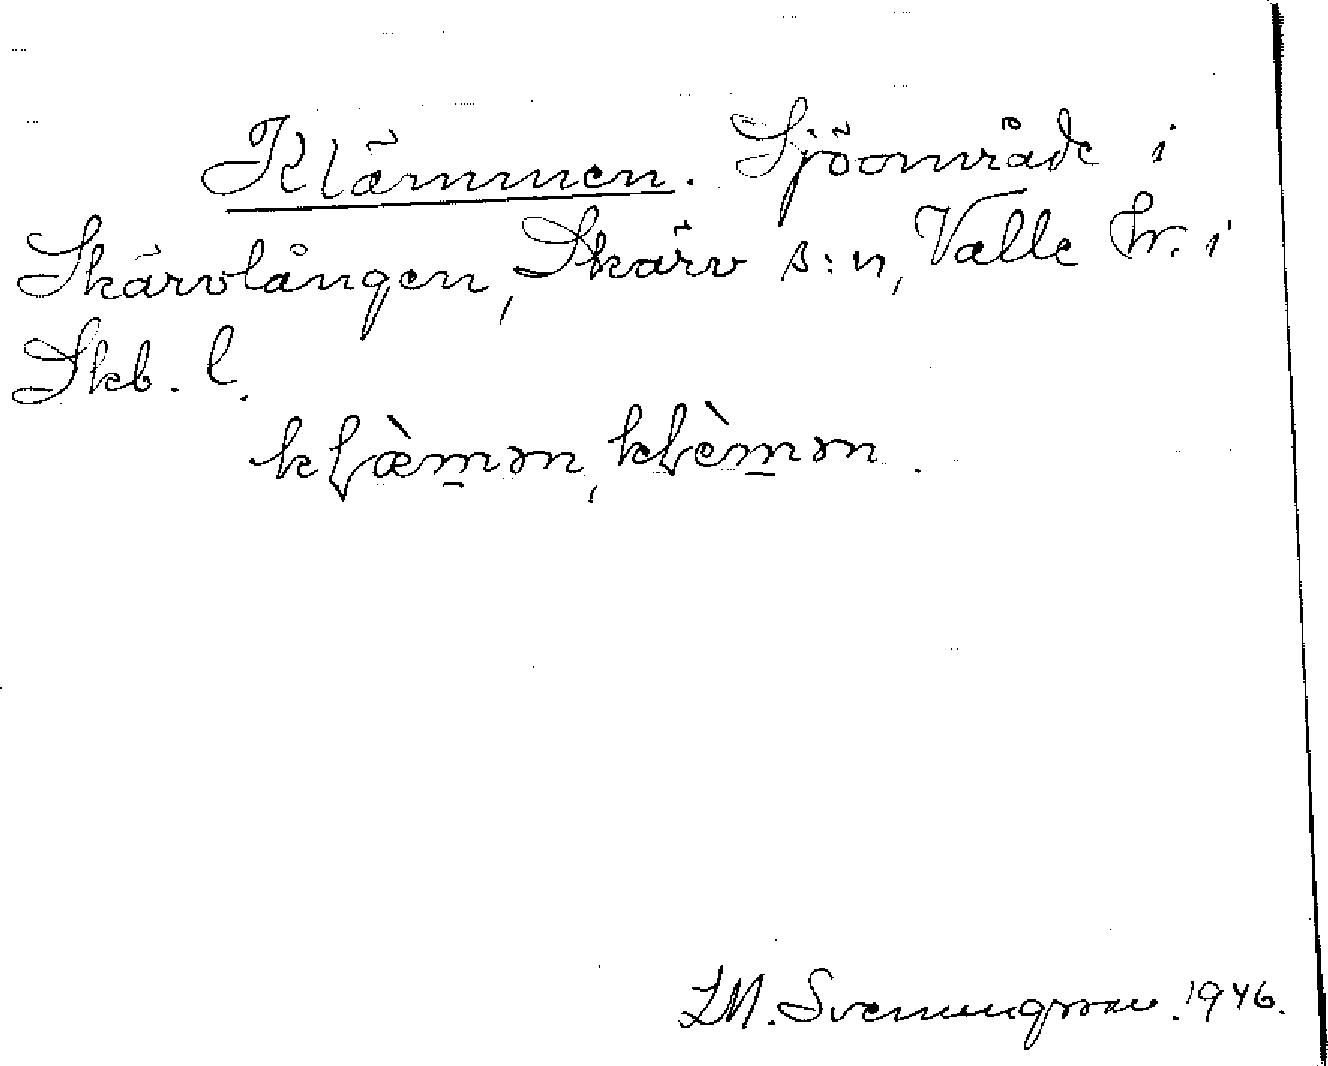 Klämmen. Sjöområde i
Skärvlången, Skärv s:n, Valle hr. i
Skb. l.
kḷæ̀m̲ən, kḷèm̲ən.
S.M. Svenungsson. 1946.